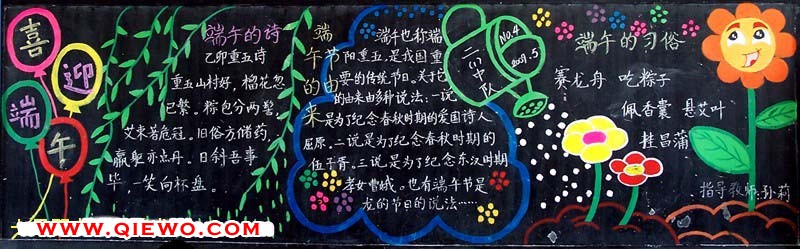 喜迎端午
端午的诗
乙卯重五诗
重五山村好，榴花忽
已繁。粽包分两髻，
艾束著危冠。旧俗方储药，
羸躯亦点丹。日斜吾事
毕，一笑向杯盘。
端午节的由来
端午也称端
阳重五，是我国重
要的传统节日。关于它
的由来由多种说法：一说
是为了纪念春秋时期的爱国诗人
屈原。二说是为了纪念春秋时期的
伍子胥。三说是为了纪念东汉时期
孝女曹娥。也有端午节是
龙的节日的说法……
二(1)中队
No.4
2009.5
端午的习俗
赛龙舟 吃粽子
佩香囊 悬艾叶
挂昌蒲
指导教师:孙莉
WWW.QIEWO.COM